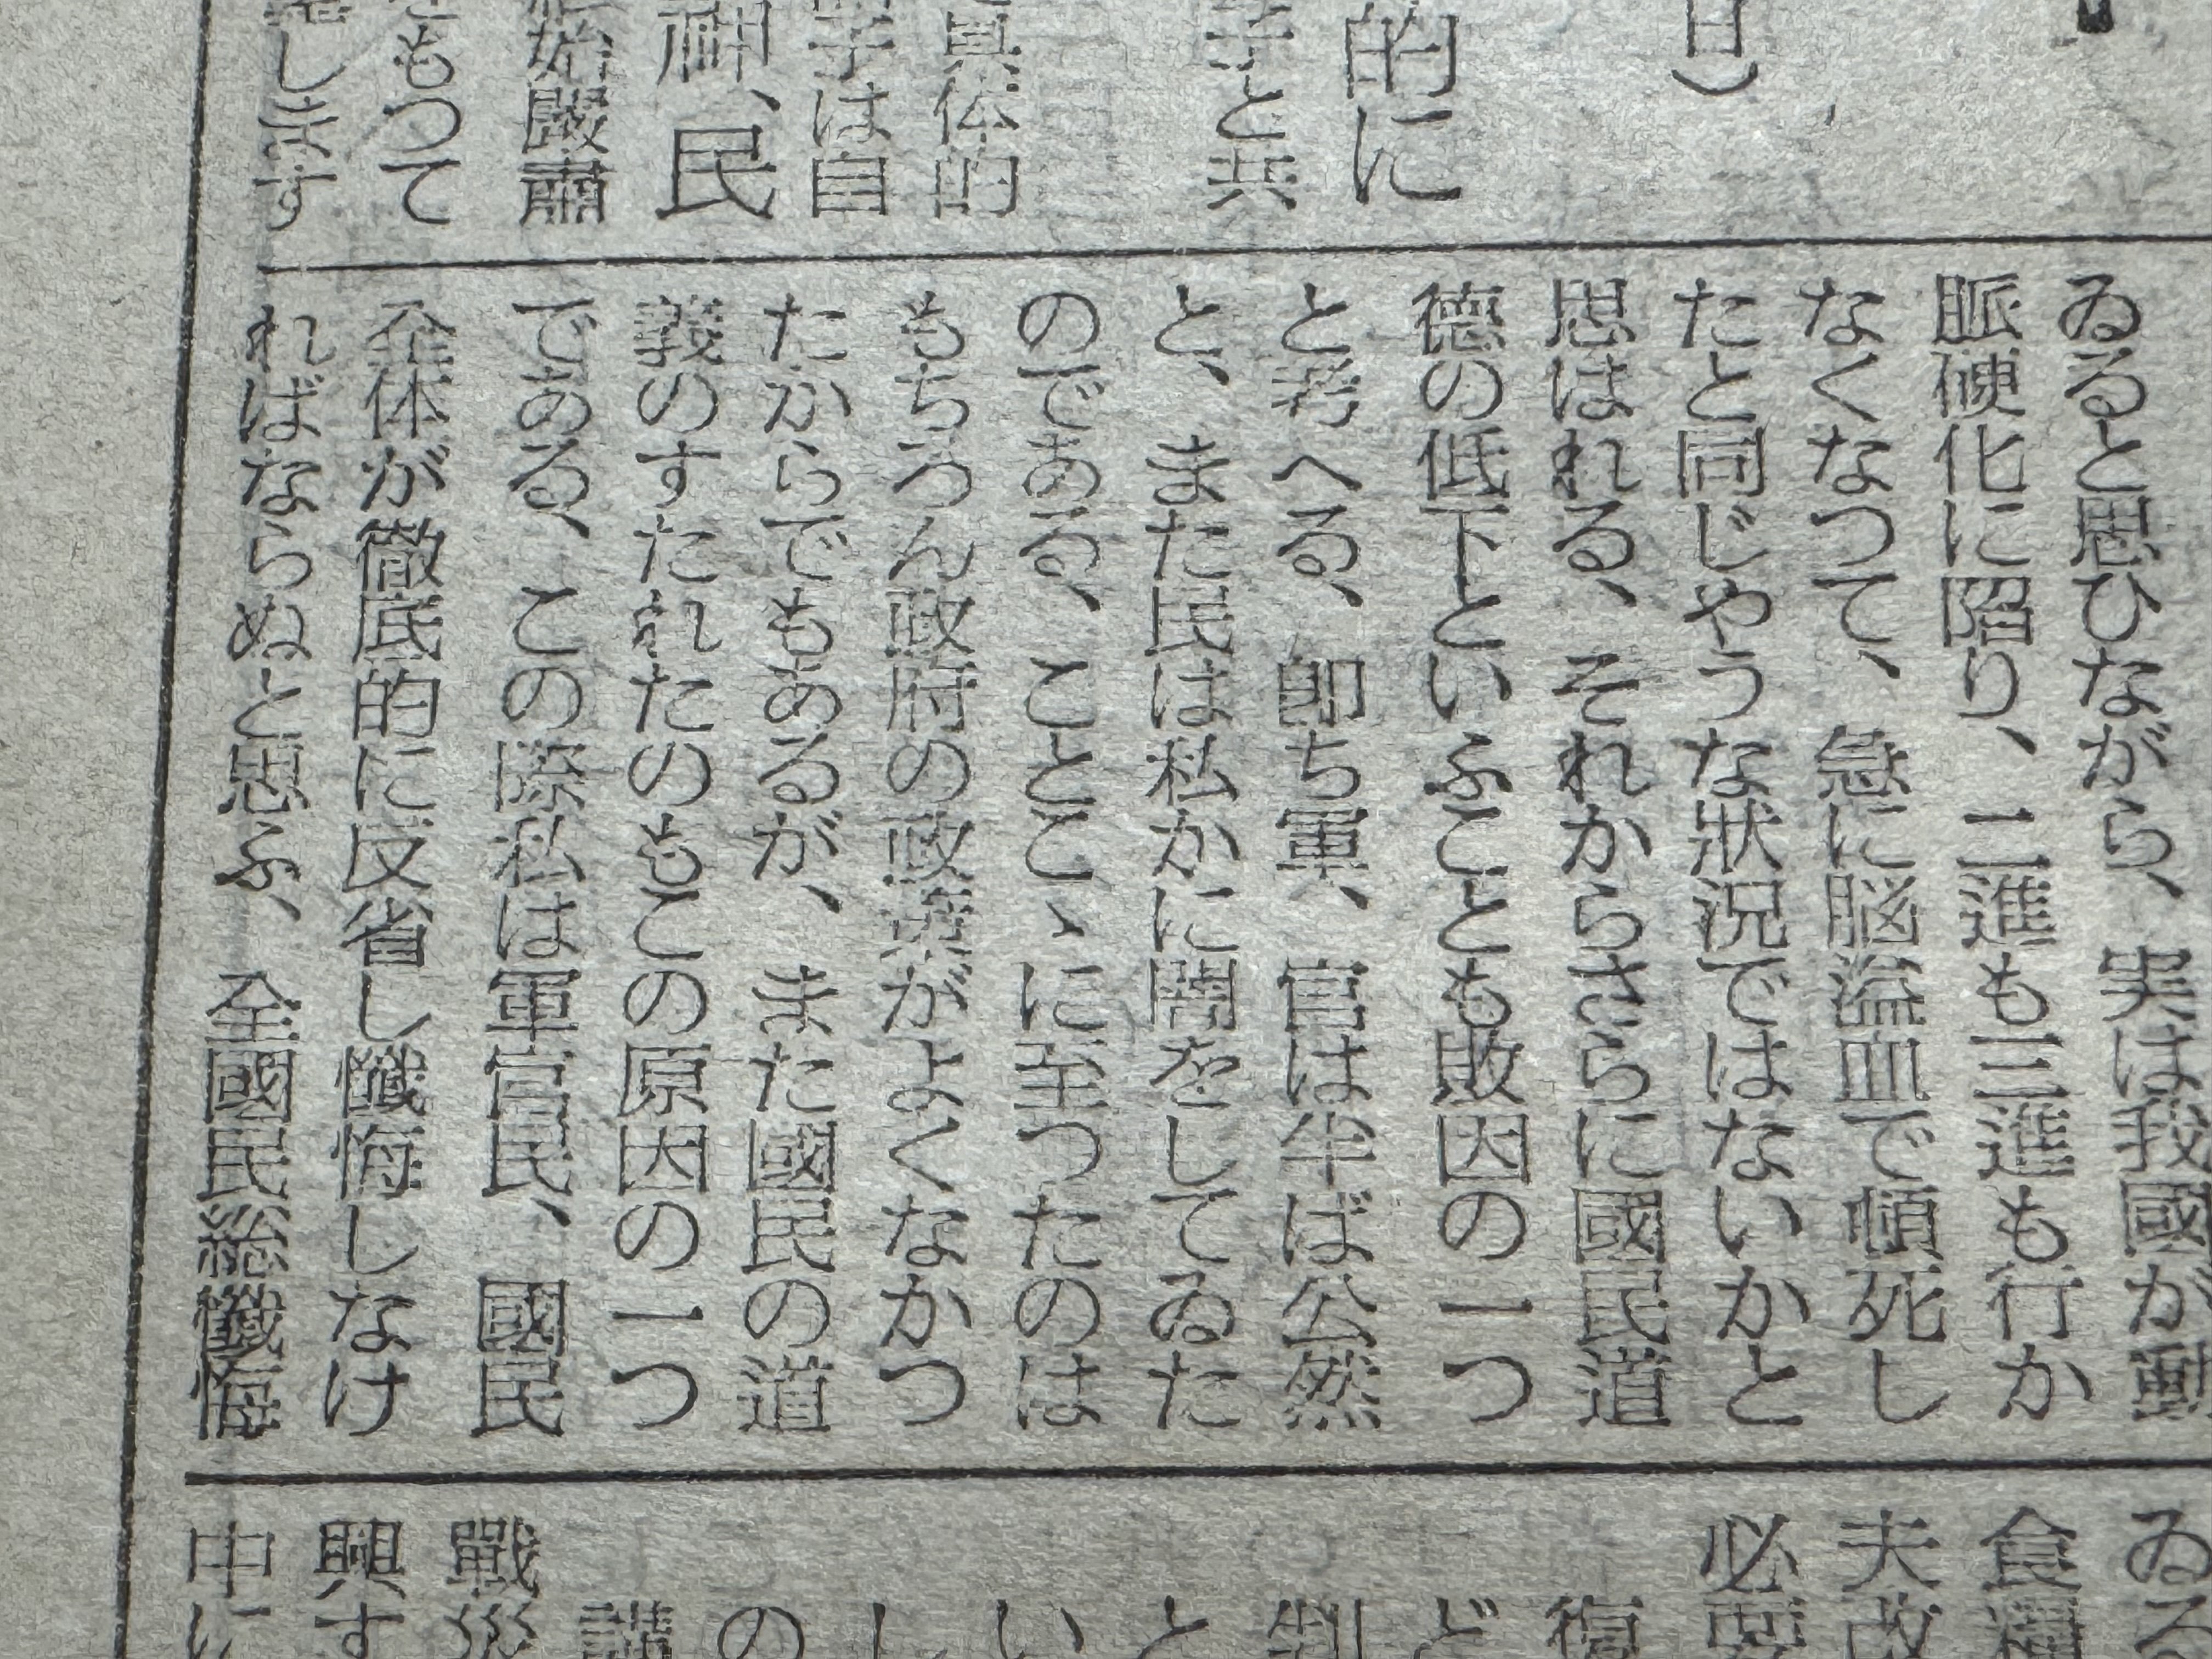 日）
的に
子と共
具体的
子は自
神、民
始嚴肅
をもつて
します
ゐると思ひながら、実は我國が動
脈硬化に陷り、二進も三進も行か
なくなつて、急に脳溢血で頓死し
たと同じやうな狀況ではないかと
思はれる、それからさらに國民道
德の低下といふことも敗因の一つ
と考へる、卽ち軍、官は半ば公然
と、また民は私かに闇をしてゐた
のである、ことこゝに至つたのは
もちろん政府の政策がよくなかつ
たからでもあるが、また國民の道
義のすたれたのもこの原因の一つ
である、この際私は軍官民、國民
全体が徹底的に反省し懺悔しなけ
ればならぬと思ふ、全國民総懺悔
ゐる
食糧
夫改
必要
復
ど
制
と
い
し
の
講
戰災
興す
中に